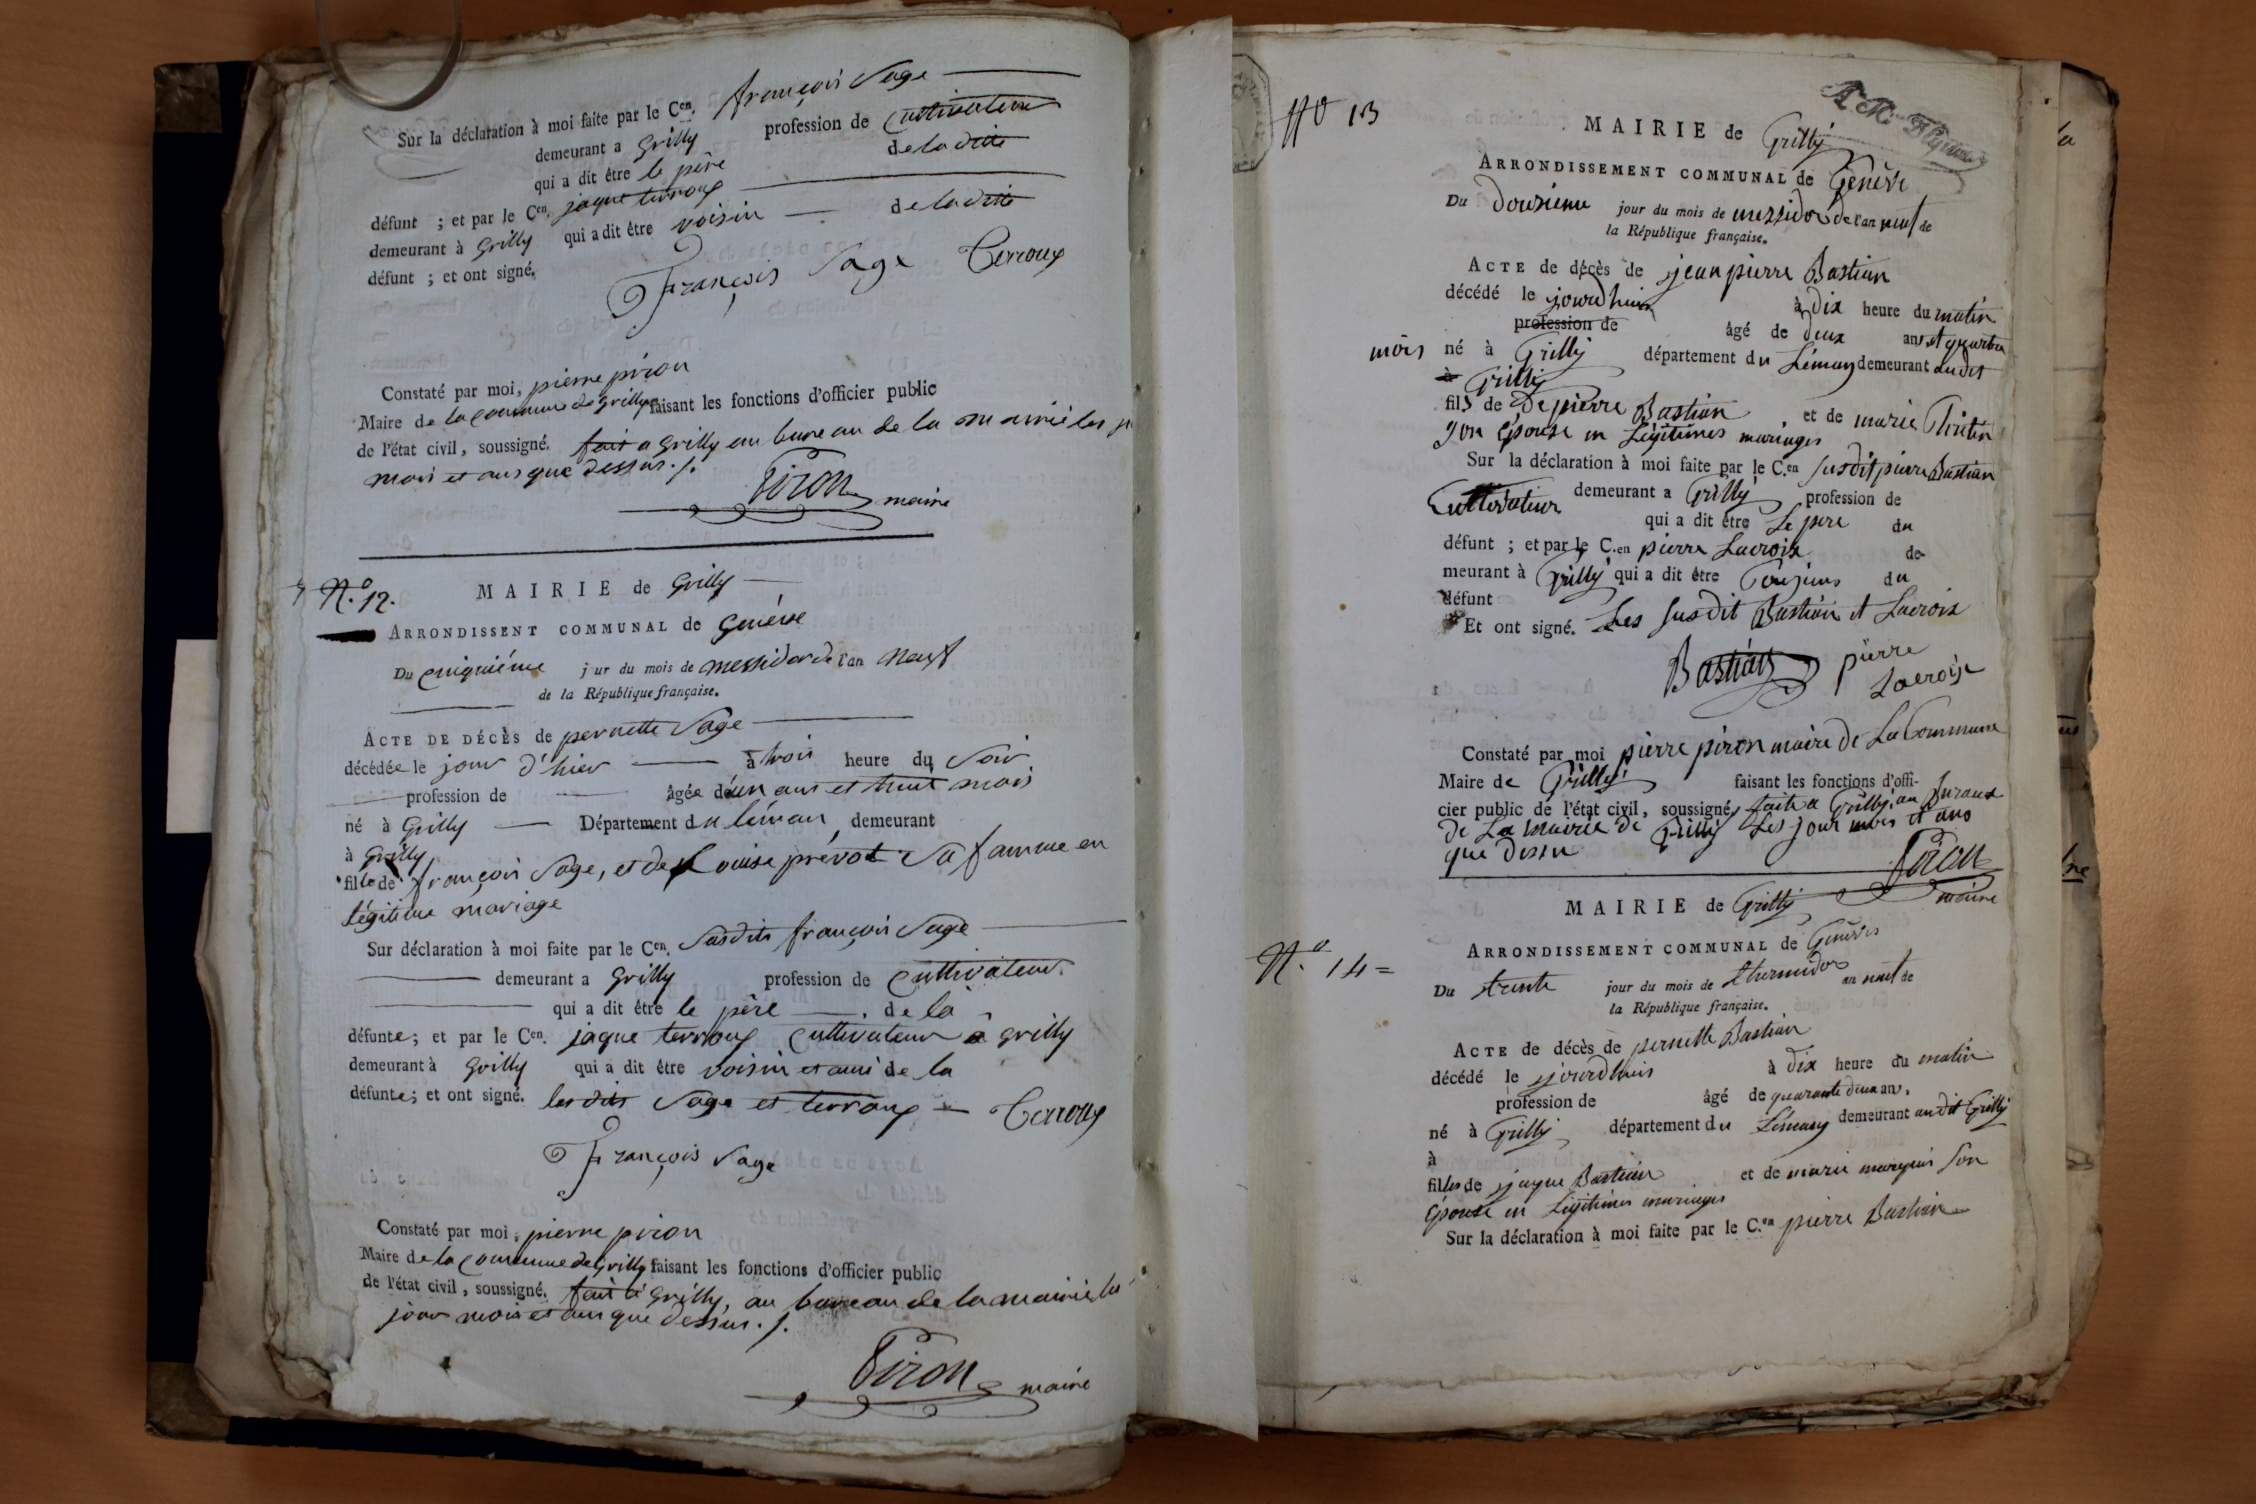 Sur la déclaration à moi faite par le Cen. françois Sage
demeurant a Grilly profession de Cultivateur
qui a dit être le père de la ditte
défunt ; et par le Cen. jaque terroux
demeurant à Grilly qui a dit être voisin de la ditte
défunt ; et ont signé.
François Sage Terroux
Constaté par moi, pierre piron
Maire de la commune de Grilly faisant les fonctions d'officier public
de l'état civil, soussigné. fait a Grilly au bureau de la mairie les
mois et ans que dessus ./.
Piron maire
N.o 12.
MAIRIE de Grilly
ARRONDISSENT COMMUNAL de Genève
Du cinquiéme j ur du mois de messidor de l'an neuf
de la République française.
ACTE DE DÉCÈS de pernette Sage
décédée le jour d'hier à trois heure du Soir
profession de âgée de un ans et huit mois
né à Grilly Département du léman demeurant
à Grilly
fille de françois Sage, et de Louise prévot Sa famme en
légitime mariage
Sur déclaration à moi faite par le Cen. Susdits françois Sage
demeurant a Grilly profession de Cultivateur.
qui a dit être le père de la
défunte; et par le Cen. jaque terroux Cultivateur a Grilly
demeurant à Grilly qui a dit être voisin et ami de la
défunte; et ont signé. les dits Sage et terroux Terroux
François Sage
Constaté par moi, pierre piron
Maire de la commune de Grilly faisant les fonctions d'officier public
de l'état civil, soussigné. fait à Grilly, au bureau de la mairie les
jour mois et ans que dessus ./.
Piron maire
No 13
MAIRIE de Grilly
ARRONDISSEMENT COMMUNAL de Genève
Du Douzieme jour du mois de messidor de l'an neuf de
la République française.
ACTE de décès de jean pierre Bastian
décédé le jourdhuis à dix heure du matin
profession de âgé de deux ans et quattre
mois né à Grilly département du Léman demeurant audit
à Grilly
fils de de pierre Bastian et de marie
son épouse en Légitimes mariages
Sur la déclaration à moi faite par le C.en susdit pierre Bastian
Cultivateur demeurant a Grilly profession de
qui a dit être Le pere du
défunt ; et par le C.en pierre Lacroix de-
meurant à Grilly qui a dit être du
défunt
Et ont signé. Les susdit Bastian et Lacroix
Bastian pierre
Lacroix
Constaté par moi pierre piron maire de La Commune
Maire de Grilly faisant les fonctions d'offi-
cier public de l'état civil, soussigné, faite a Grilly, au bureaux
de La mairie de Grilly Les jour mois et ans
que dessu
Piron
maire
MAIRIE de Grilly
ARRONDISSEMENT COMMUNAL de Genève
N.o 14 =
Du trente jour du mois de thermidor an neuf de
la République française.
ACTE de décès de pernette Bastian
décédé le jourdhuis à dix heure du matin
profession de âgé de quarante deux ans.
né à Grilly département du Léman demeurant audit Grilly
à
filles de jaque Bastian et de marie marquis son
épouse en Légitimes mariages
Sur la déclaration à moi faite par le C.en pierre Bastian